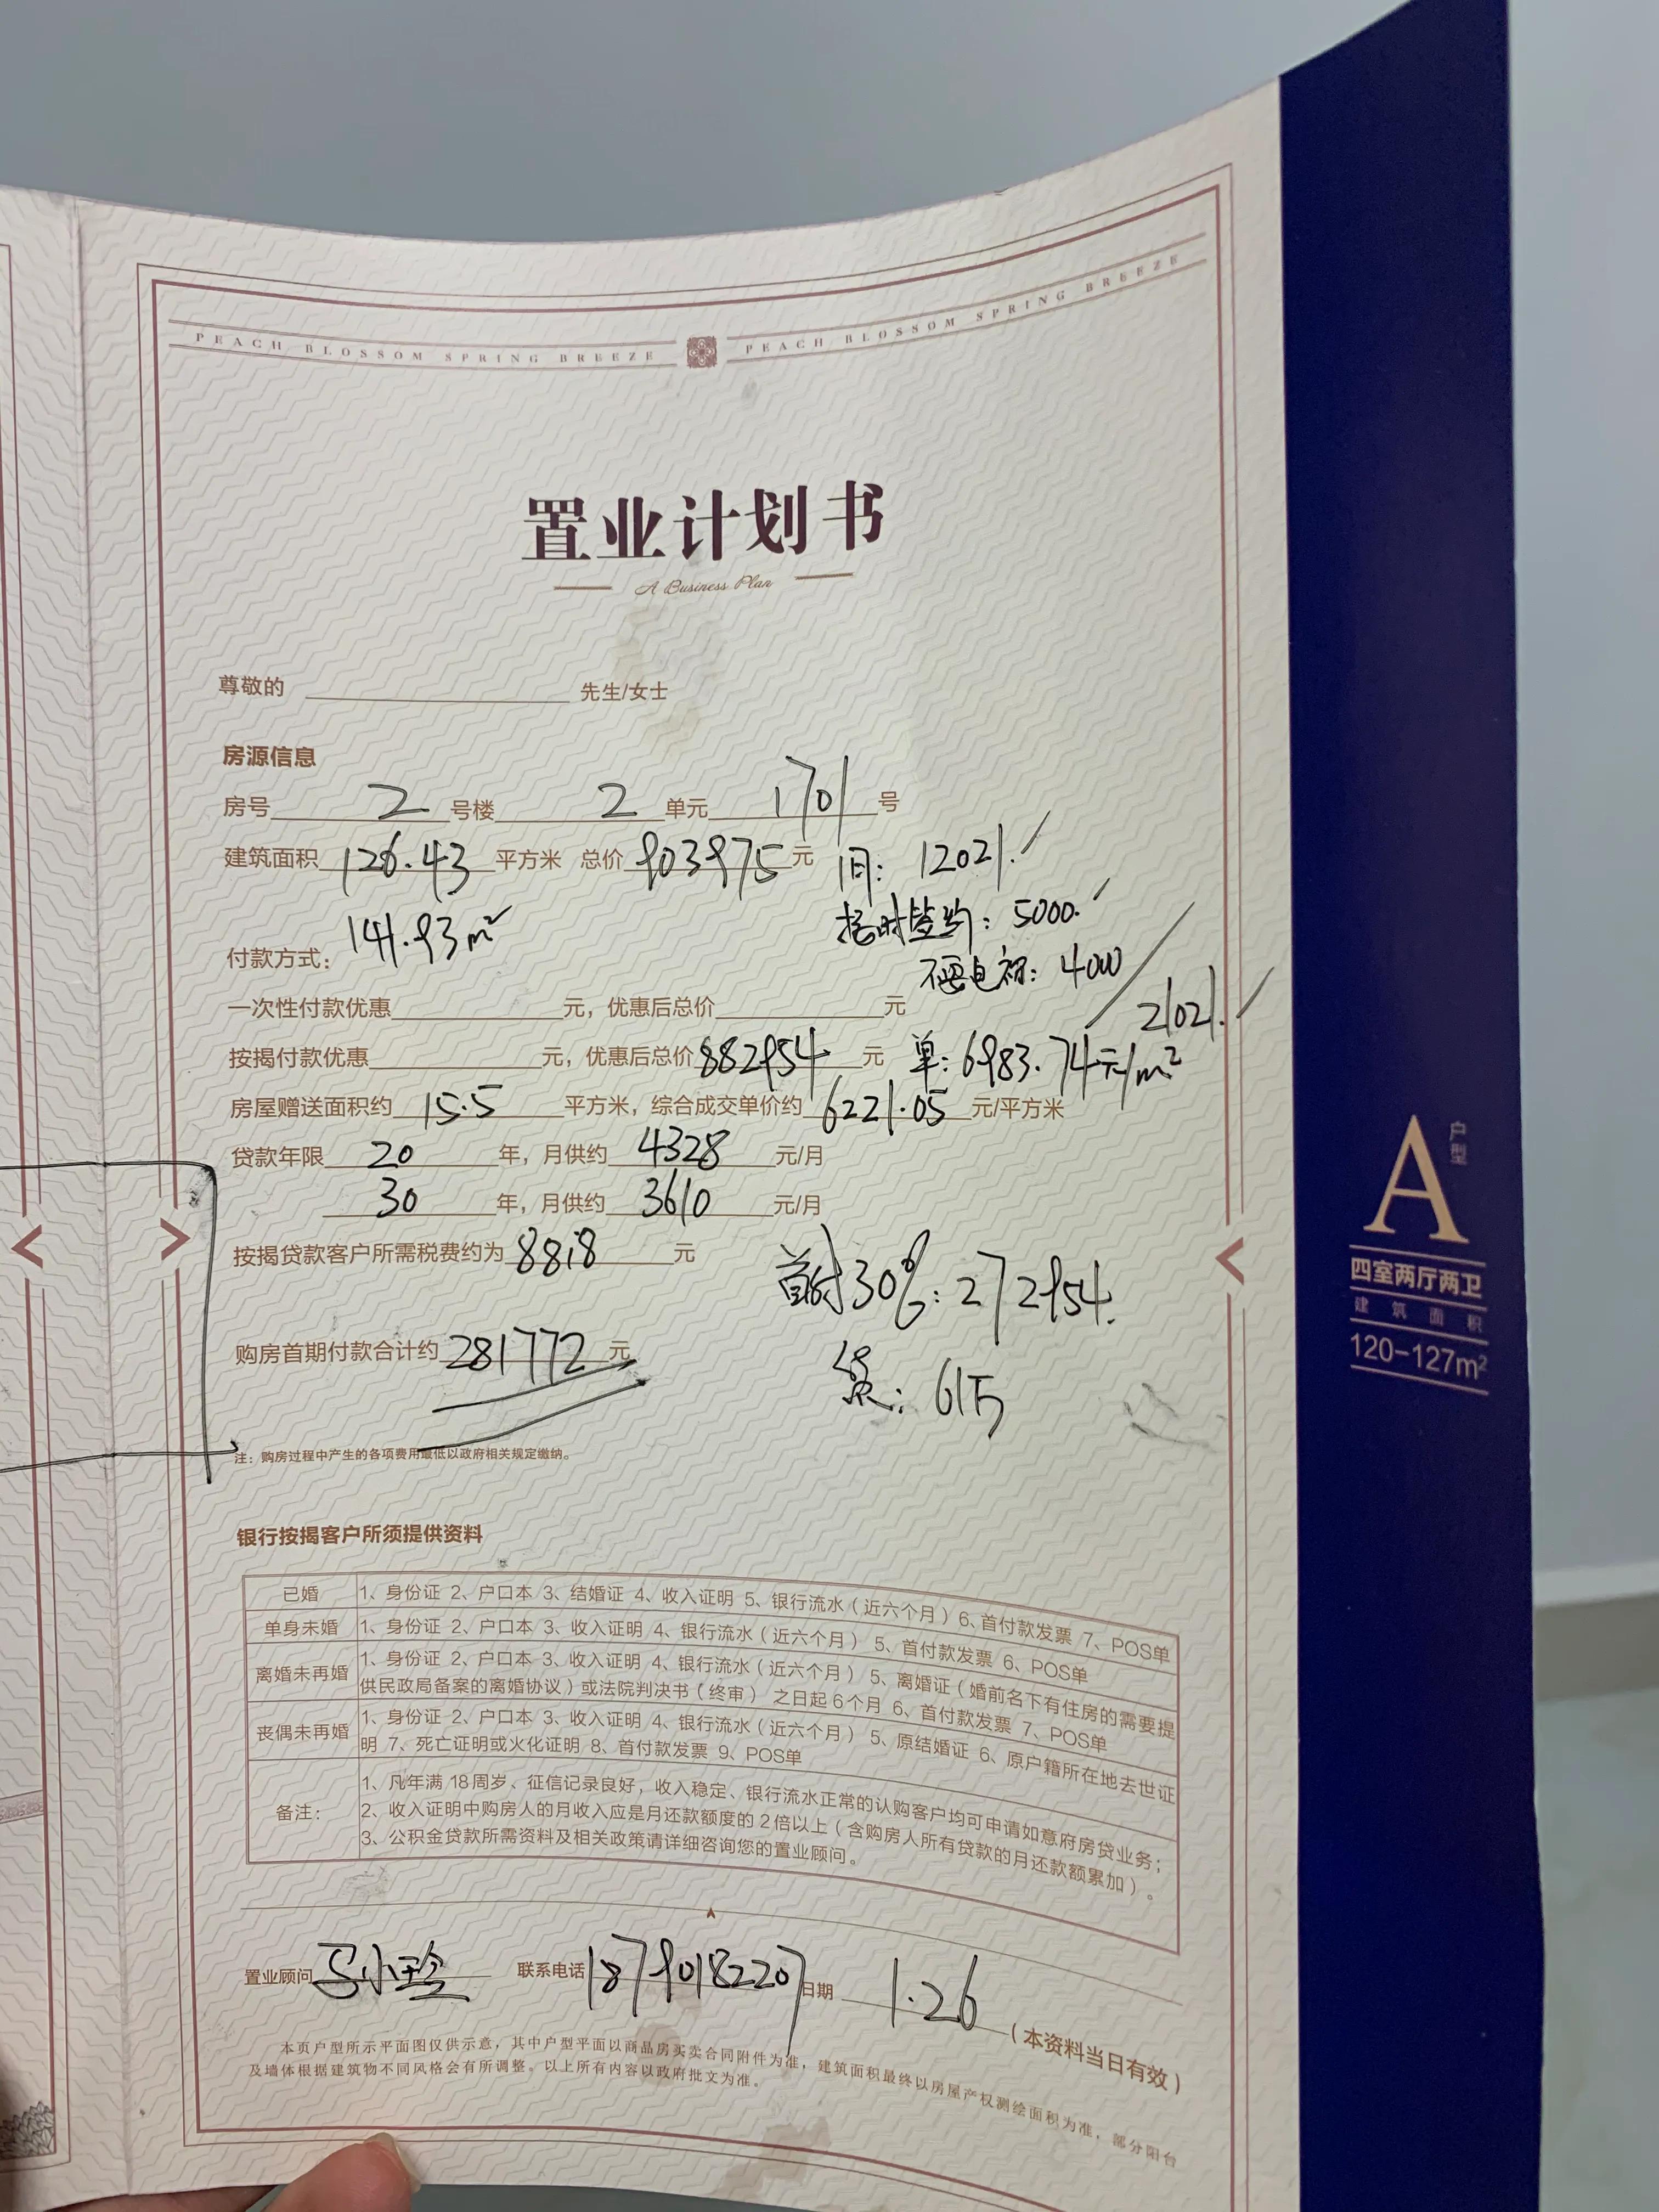 PEACH BLOSSOM SPRING BREEZE PEACH BLOSSOM SPRING BREEZE
置业计划书
A Business Plan
尊敬的 先生/女士
房源信息
房号 2 号楼 2 单元 1701 号
建筑面积 126.43 平方米 总价 903975 元
12021.
141.93m²
按时签约: 5000.
付款方式:
4000
一次性付款优惠 元, 优惠后总价 元
21021.
按揭付款优惠 元, 优惠后总价 882954 元 单: 6983.74元/m²
房屋赠送面积约 15.5 平方米, 综合成交单价约 6221.05 元/平方米
贷款年限 20 年, 月供约 4328 元/月
30 年, 月供约 3610 元/月
按揭贷款客户所需税费约为 8818 元
首付30%: 272954.
购房首期付款合计约 281772 元
贷: 61万
注: 购房过程中产生的各项费用最低以政府相关规定缴纳。
银行按揭客户所须提供资料
已婚 1、身份证 2、户口本 3、结婚证 4、收入证明 5、银行流水(近六个月) 6、首付款发票 7、POS单
单身未婚 1、身份证 2、户口本 3、收入证明 4、银行流水(近六个月) 5、首付款发票 6、POS单
离婚未再婚 1、身份证 2、户口本 3、收入证明 4、银行流水(近六个月) 5、离婚证(婚前名下有住房的需要提
供民政局备案的离婚协议)或法院判决书(终审) 之日起6个月 6、首付款发票 7、POS单
丧偶未再婚 1、身份证 2、户口本 3、收入证明 4、银行流水(近六个月) 5、原结婚证 6、原户籍所在地去世证
明 7、死亡证明或火化证明 8、首付款发票 9、POS单
备注: 1、凡年满18周岁、征信记录良好, 收入稳定、银行流水正常的认购客户均可申请如意府房贷业务;
2、收入证明中购房人的月收入应是月还款额度的2倍以上(含购房人所有贷款的月还款额累加)。
3、公积金贷款所需资料及相关政策请详细咨询您的置业顾问。
置业顾问 马小玲 联系电话 18790182207 日期 1.26 (本资料当日有效)
本页户型所示平面图仅供示意, 其中户型平面以商品房买卖合同附件为准, 建筑面积最终以房屋产权测绘面积为准, 部分阳台
及墙体根据建筑物不同风格会有所调整。以上所有内容以政府批文为准。
A户型
四室两厅两卫
建筑面积
120-127m²